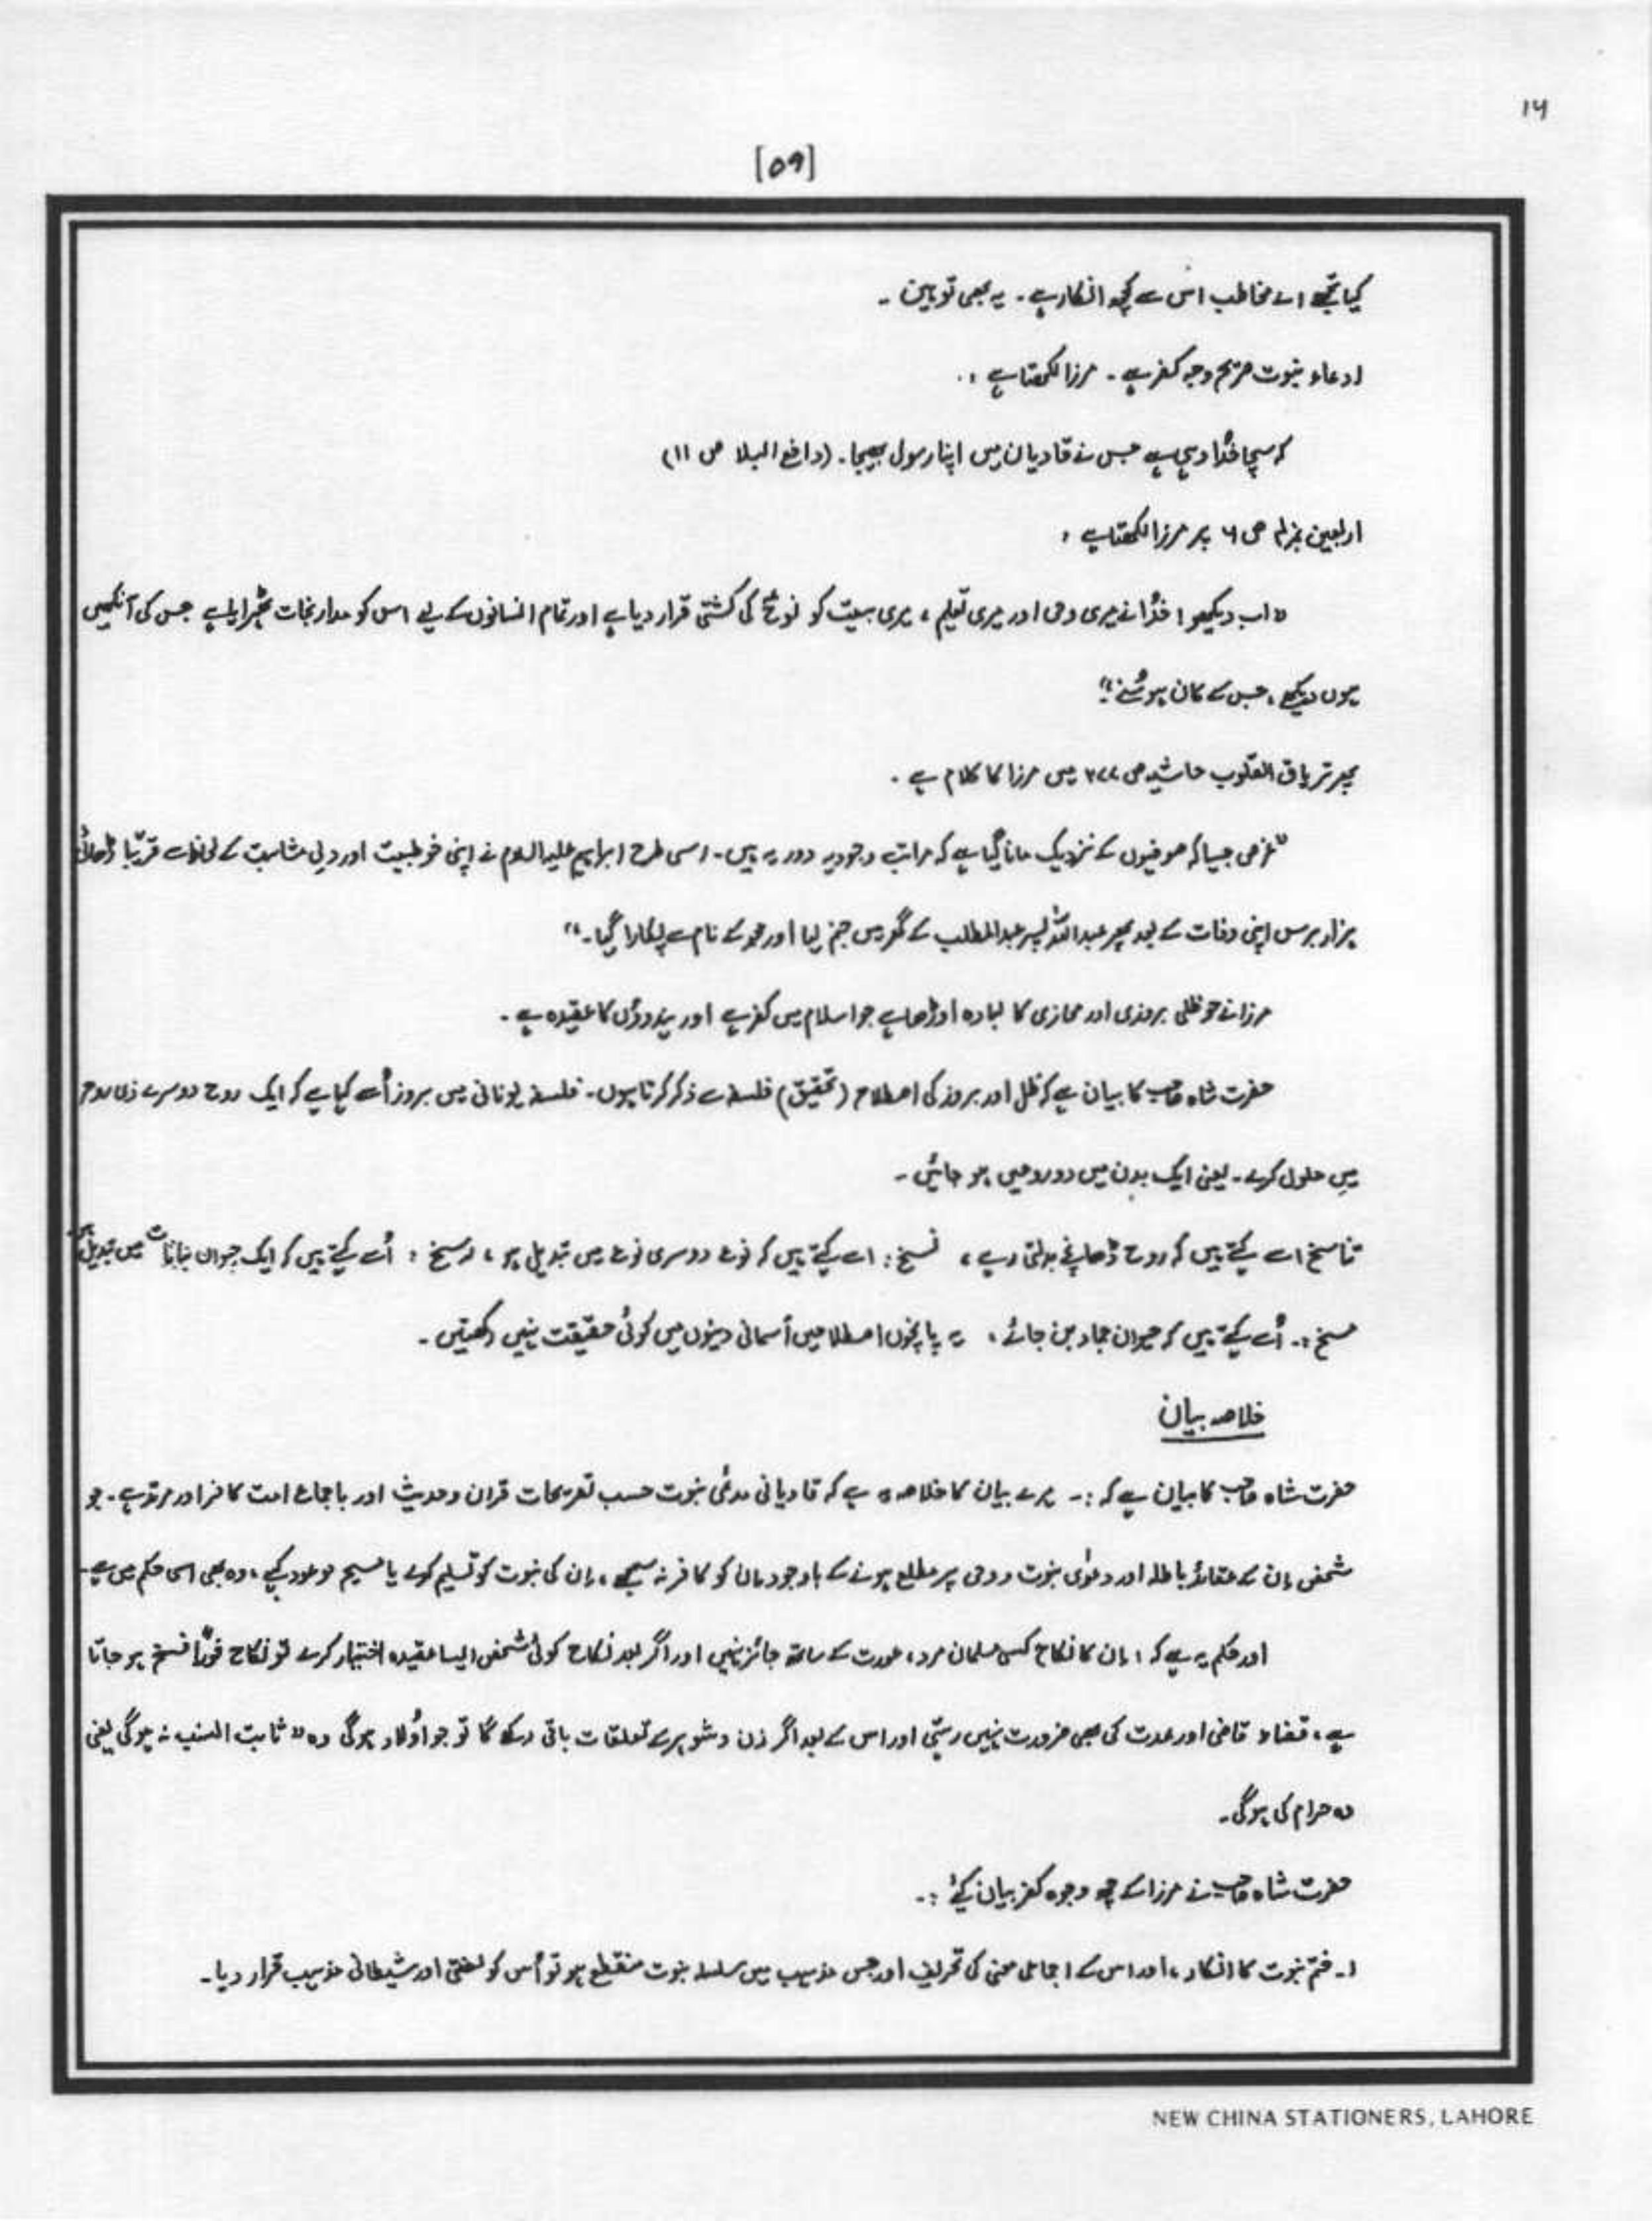 ۱۶
[۵۹]
کیا تجھے اے مخاطب اس سے کچھ انکار ہے۔ یہ بھی توہین۔
ادعاء نبوت صریح وجہ کفر ہے۔ مرزا لکھتا ہے:۔
کہ سچا خدا وہی ہے جس نے قادیان میں اپنا رسول بھیجا۔ (دافع البلا ص ۱۱)
اربعین ص ۶ پر مرزا لکھتا ہے:
"اب دیکھو! خدا نے میری وحی اور میری تعلیم، میری بیعت کو نوحؑ کی کشتی قرار دیا ہے اور تمام انسانوں کے لیے اس کو مدار نجات ٹھہرایا ہے جس کی آنکھیں
ہوں دیکھے، جس کے کان ہو سُنے"۔
پھر تریاق القلوب حاشیہ ص ۳۷۷ میں مرزا کا کلام ہے۔
"غرض جیسا کہ صوفیوں کے نزدیک مانا گیا ہے کہ مراتب وجودیہ دوریہ ہیں۔ اسی طرح ابراہیم علیہ السلام نے اپنی خو طبیعت اور دلی مشابہت کے لحاظ سے قریبًا ڈھائی
ہزار برس اپنی وفات کے بعد پھر عبداللہ پسر عبدالمطلب کے گھر میں جنم لیا اور محمد کے نام سے پکارا گیا۔"
مرزا نے جو ظلی بروزی اور مجازی کا لبادہ اوڑھا ہے جو اسلام میں کفر ہے اور ہندوؤں کا عقیدہ ہے۔
حضرت شاہ صاحب کا بیان ہے کہ ظل اور بروز کی اصطلاح (تحقیق) فلسفہ سے ذکر کرتا ہوں۔ فلسفہ یونانی میں بروز اُسے کہا ہے کہ ایک روح دوسرے ذی روح
میں حلول کرے۔ یعنی ایک بدن میں دو روحیں ہو جائیں۔
تناسخ اسے کہتے ہیں کہ روح ڈھانچے بدلتی رہے، نسخ: اسے کہتے ہیں کہ نوع دوسری نوع میں تبدیل ہو، رسخ: اُسے کہتے ہیں کہ ایک حیوان نباتات میں تبدیل ہو
مسخ:۔ اُسے کہتے ہیں کہ حیوان جماد بن جائے، یہ پانچوں اصطلاحیں آسمانی دینوں میں کوئی حقیقت نہیں رکھتیں۔
خلاصہ بیان
حضرت شاہ صاحب کا بیان ہے کہ:۔ میرے بیان کا خلاصہ یہ ہے کہ قادیانی مدعی نبوت حسب تصریحات قرآن و حدیث اور باجماع امت کافر اور مرتد ہے۔ جو
شخص اِن کے عقائد باطلہ اور دعویٰ نبوت و وحی پر مطلع ہونے کے باوجود اِن کو کافر نہ سمجھے، اِن کی نبوت کو تسلیم کرے یا مسیح موعود کہے، وہ بھی اسی حکم میں ہے۔
اور حکم یہ ہے کہ: اِن کا نکاح کسی مسلمان مرد، عورت کے ساتھ جائز نہیں اور اگر بعد نکاح کوئی شخص ایسا عقیدہ اختیار کرے تو نکاح فورًا فسخ ہو جاتا
ہے، قضاء قاضی اور عدت کی بھی ضرورت نہیں رہتی اور اس کے بعد اگر زن و شوہر سے تعلقات باقی رکھے گا تو جو اولاد ہوگی وہ "ثابت النسب نہ ہوگی یعنی
وہ حرام کی ہوگی۔
حضرت شاہ صاحب نے مرزا کے چھ وجوہ کفر بیان کیے:۔
۱۔ ختم نبوت کا انکار، اور اس کے اجماعی معنی کی تحریف اور جس مذہب میں سلسلہ نبوت منقطع ہو تو اُس کو لعنتی اور شیطانی مذہب قرار دیا۔
NEW CHINA STATIONERS, LAHORE